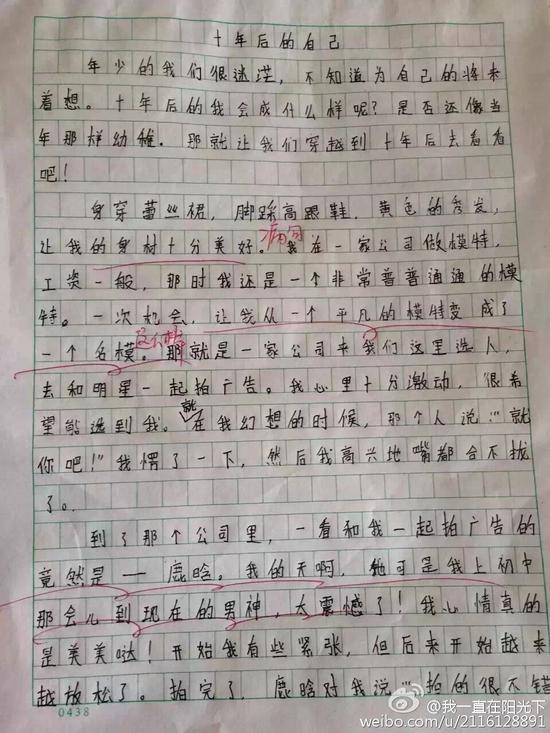 十年后的自己
年少的我们很迷茫，不知道为自己的将来
着想。十年后的我会成什么样呢？是否还像当
年那样幼稚。那就让我们穿越到十年后去看看
吧！
身穿蕾丝裙，脚踩高跟鞋，黄色的秀发，
让我的身材十分美好。病句我在一家公司做模特，
工资一般，那时我还是一个非常普普通通的模
特。一次机会，让我从一个平凡的模特变成了
一个名模。那就是一家公司来我们这里选人，
去和明星一起拍广告。我心里十分激动，很希
望能选到我。就在我幻想的时候，那个人说："就
你吧！"我愣了一下，然后我高兴地嘴都合不拢
了。
到了那个公司里，一看和我一起拍广告的
竟然是——鹿晗。我的天啊，他可是我上初中
那会儿到现在的男神，太震憾了！我心情真的
是美美哒！开始我有些紧张，但后来开始越来
越放松了。拍完了，鹿晗对我说："拍的很不错
0438
@我一直在阳光下
weibo.com/u/2116128891